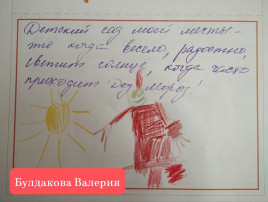 Детский сад моей мечты -
это когда весело, радостно,
светит солнце, когда часто
приходит Дед Мороз!
Булдакова Валерия